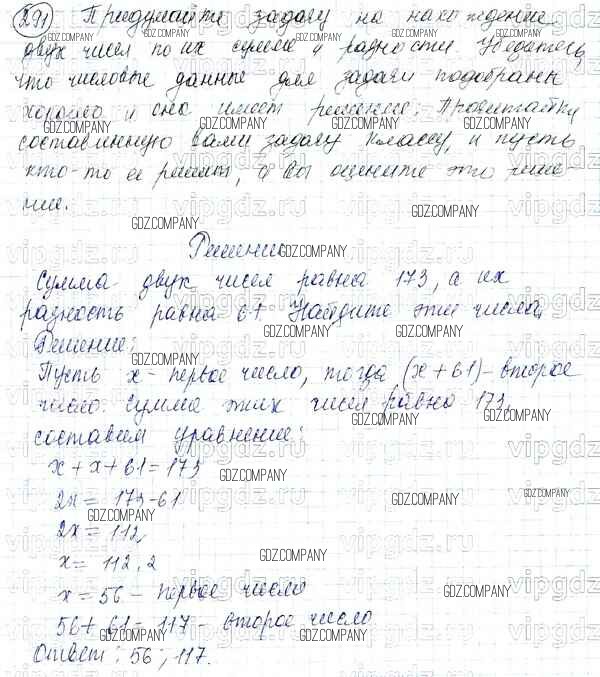 291 Придумайте задачу на нахождение
двух чисел по их сумме и разности. Убедитесь,
что числовые данные для задачи подобраны
хорошо и она имеет решение. Прочитайте
составленную вами задачу классу, и пусть
кто-то ее решит, а вы оцените это реше-
ние.
Решение
Сумма двух чисел равна 173, а их
разность равна 61. Найдите эти числа.
Решение:
Пусть х - первое число, тогда (х + 61) - второе
число. Сумма этих чисел равно 173,
составим уравнение:
х + х + 61 = 173
2х = 173 - 61
2х = 112
х = 112 : 2
х = 56 - первое число
56 + 61 = 117 - второе число
Ответ: 56; 117.
GDZ.COMPANY
vipgdz.ru